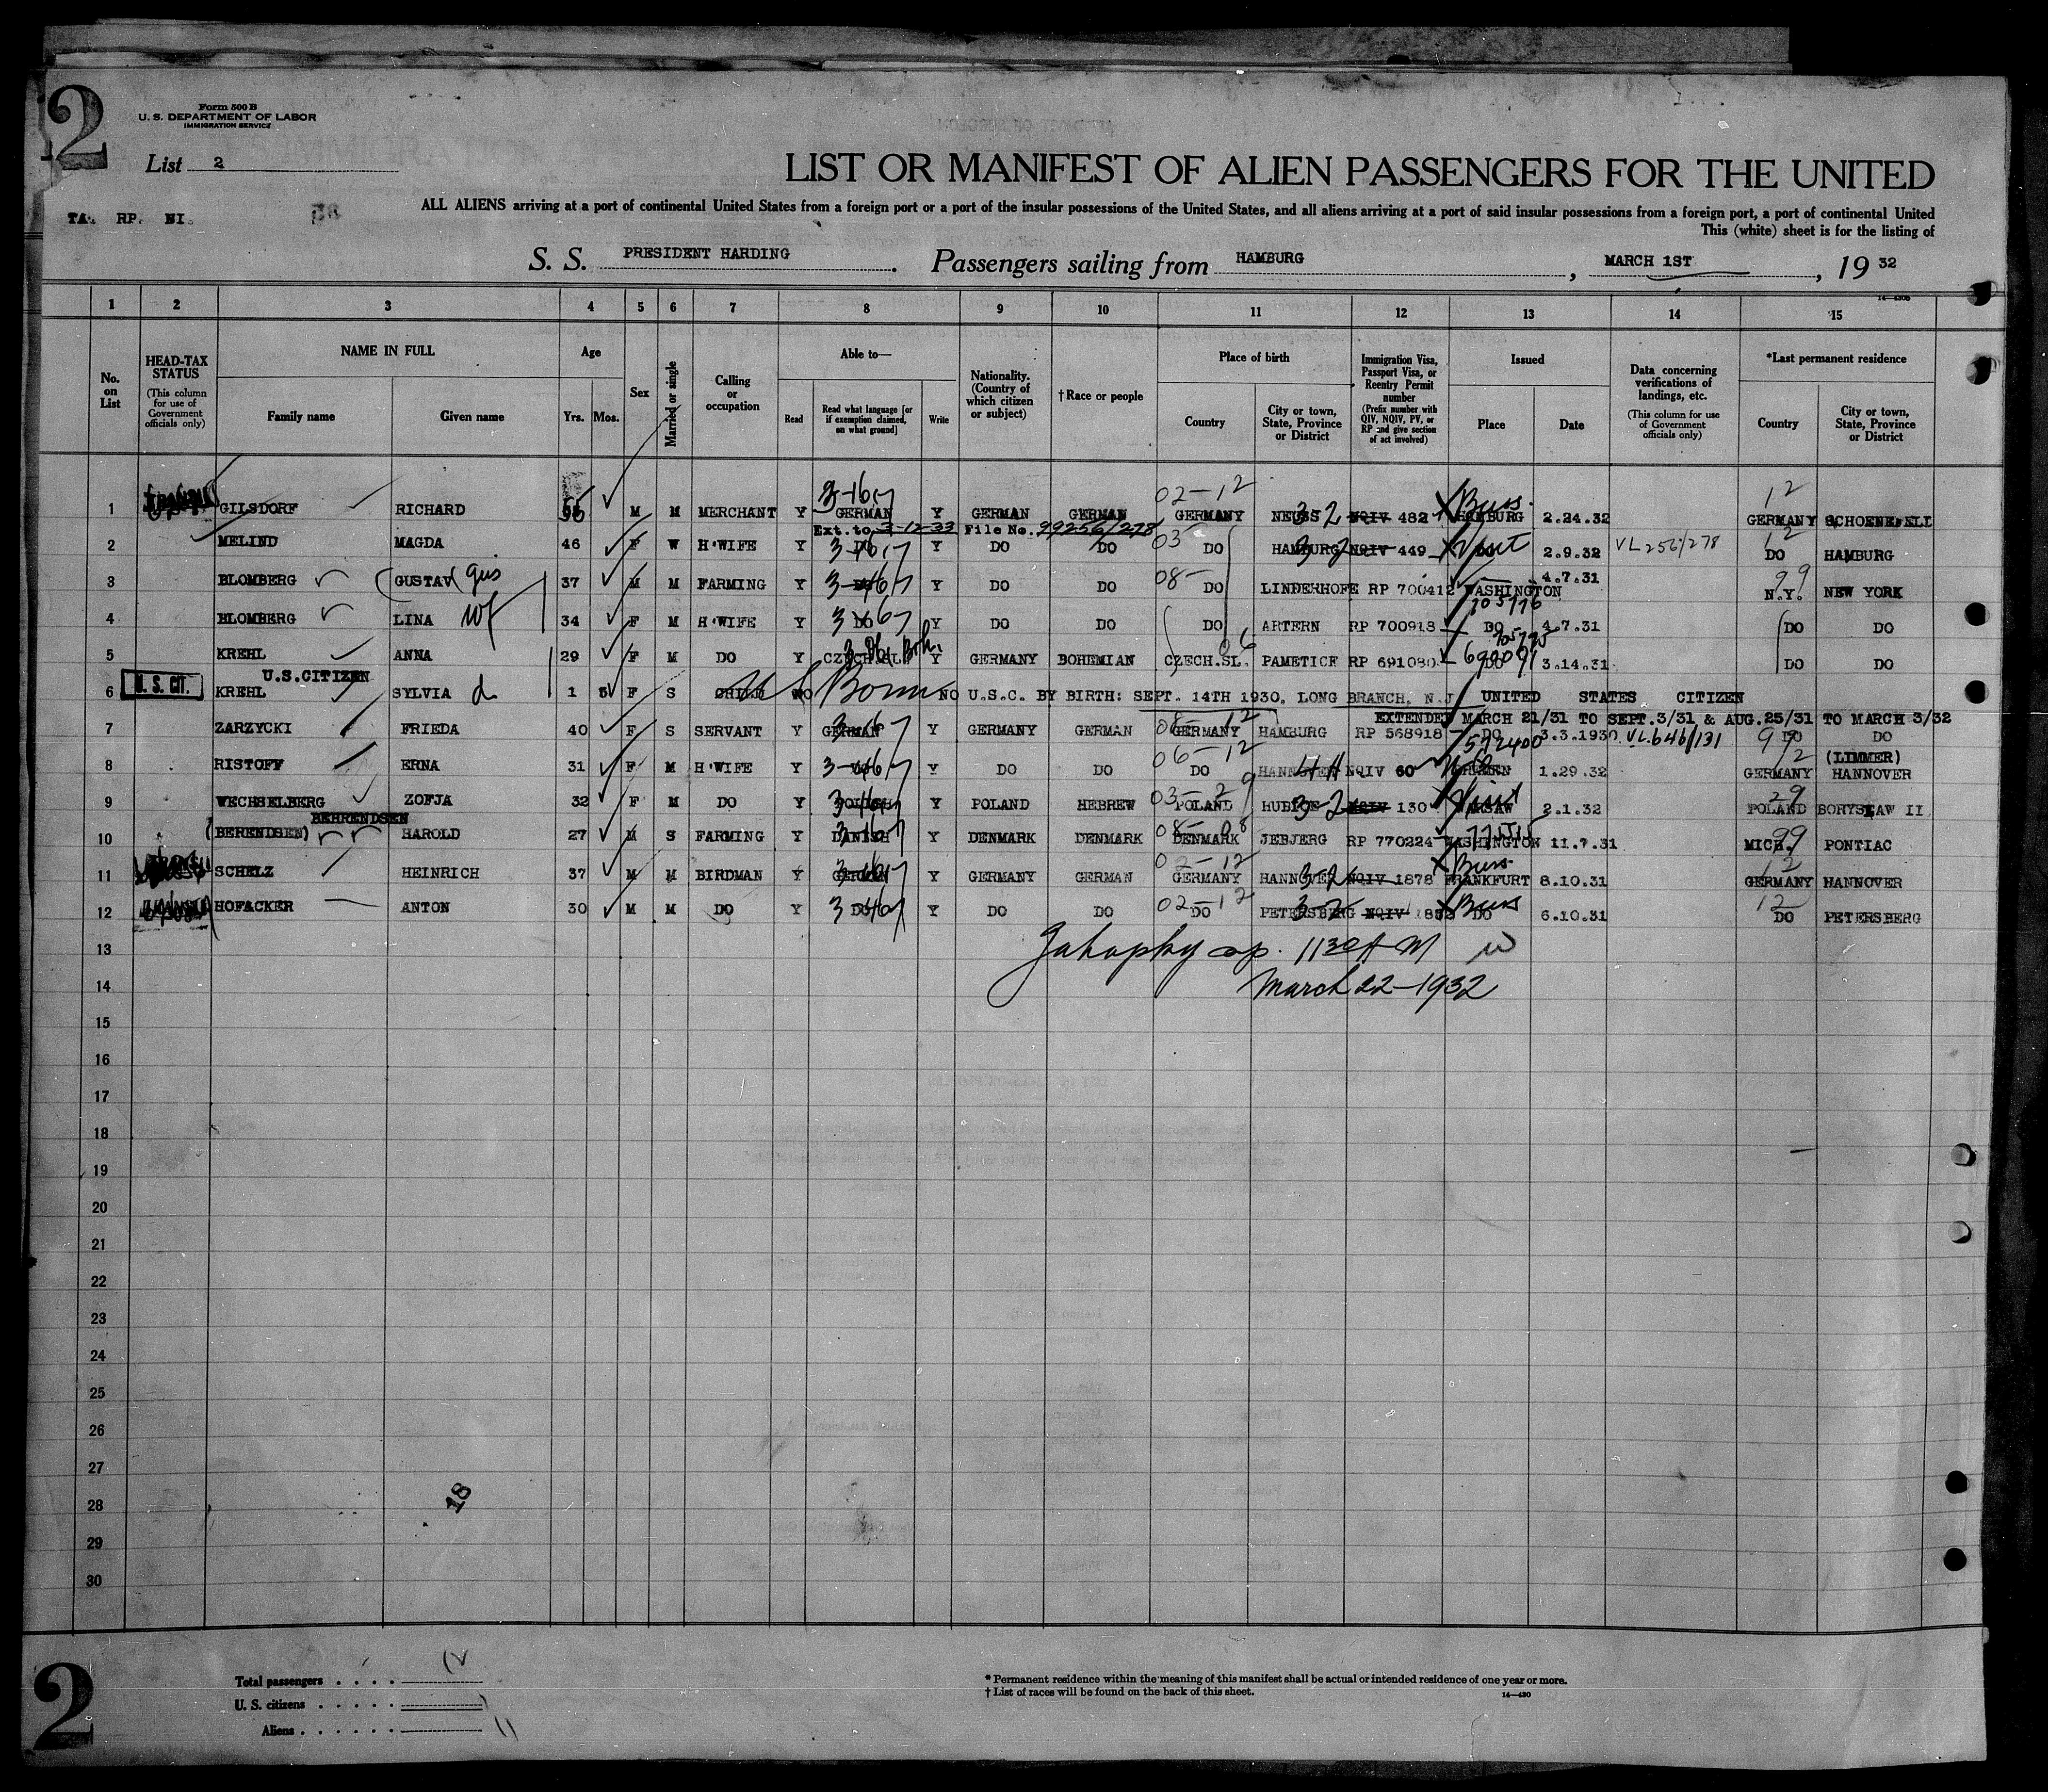 2
Form 500 B
U. S. DEPARTMENT OF LABOR
IMMIGRATION SERVICE
List 2
LIST OR MANIFEST OF ALIEN PASSENGERS FOR THE UNITED
TA. RP. NI.
ALL ALIENS arriving at a port of continental United States from a foreign port or a port of the insular possessions of the United States, and all aliens arriving at a port of said insular possessions from a foreign port, a port of continental United
This (white) sheet is for the listing of
S. S. PRESIDENT HARDING. Passengers sailing from HAMBURG, MARCH 1ST, 19 32
1 2 3 4 5 6 7 8 9 10 11 12 13 14 15
No. on List
HEAD-TAX STATUS
(This column for use of Government officials only)
NAME IN FULL
Family name Given name
Age
Yrs. Mos.
Sex
Married or single
Calling or occupation
Able to—
Read
Read what language [or if exemption claimed, on what ground]
Write
Nationality. (Country of which citizen or subject)
† Race or people
Place of birth
Country
City or town, State, Province or District
Immigration Visa, Passport Visa, or Reentry Permit number
(Prefix number with QIV, NQIV, PV, or RP and give section of act involved)
Issued
Place Date
Data concerning verifications of landings, etc.
(This column for use of Government officials only)
*Last permanent residence
Country
City or town, State, Province or District
3-16 02-12 Buss. 12
1 GILSDORF RICHARD M M MERCHANT Y GERMAN Y GERMAN GERMAN GERMANY NEUSS 3-2 NQIV 482 HAMBURG 2.24.32 GERMANY
Ext. to 3-12-33 File No. 99256/278
2 MELIND MAGDA 46 F W H'WIFE Y DO Y DO DO 03 DO HAMBURG 3-2 NQIV 449 Visit 2.9.32 VL 256/278 12 DO HAMBURG
3 BLOMBERG GUSTAV gus 37 M M FARMING Y DO Y DO DO 08- DO LINDERHOFE RP 700412 WASHINGTON 4.7.31 99 N.Y. NEW YORK
4 BLOMBERG LINA wf 34 F M H'WIFE Y DO Y DO DO DO ARTERN RP 700918 705776 DO 4.7.31 DO DO
5 KREHL ANNA 29 F M DO Y CZECH.SL. Boh. Y GERMANY BOHEMIAN CZECH.SL. PAMETICF RP 691080 690091 DO 3.14.31 DO DO
U.S.CITIZEN
6 U. S. CIT. KREHL SYLVIA d 1 5 F S CHILD NO US Born NO U.S.C. BY BIRTH: SEPT. 14TH 1930, LONG BRANCH, N.J. UNITED STATES CITIZEN
EXTENDED MARCH 21/31 TO SEPT.3/31 & AUG.25/31 TO MARCH 3/32
7 ZARZYCKI FRIEDA 40 F S SERVANT Y GERMAN Y GERMANY GERMAN GERMANY HAMBURG RP 568918 572400 DO 3.3.1930 VL646/131 99 DO DO
8 RISTOFF ERNA 31 F M H'WIFE Y DO Y DO DO 06-12 DO HANNOVER NQIV 60 BREMEN 1.29.32 12 GERMANY (LIMMER) HANNOVER
9 WECHSELBERG ZOFJA 32 F M DO Y POLISH Y POLAND HEBREW 03-29 POLAND 3-2 NQIV 130 Visit WARSAW 2.1.32 29 POLAND BORYSLAW II
BEHRENDSEN
10 (BERENDSEN) HAROLD 27 M S FARMING Y DANISH Y DENMARK DENMARK 08-08 DENMARK JEBJERG RP 770224 WASHINGTON 11.7.31 MICH. 99 PONTIAC
11 SCHELZ HEINRICH 37 M M BIRDMAN Y GERMAN Y GERMANY GERMAN 02-12 GERMANY HANNOVER 3-2 NQIV 1878 Buss. FRANKFURT 8.10.31 12 GERMANY HANNOVER
12 HOFACKER ANTON 30 M M DO Y DO Y DO DO 02-12 DO PETERSBERG 3-2 NQIV Buss DO 6.10.31 12 DO PETERSBERG
13 1130 A M
14 March 22-1932
15
16
17
18
19
20
21
22
23
24
25
26
27
28
29
30
18
Total passengers . . . . 12
U. S. citizens . . . . . 1
Aliens . . . . . . 11
* Permanent residence within the meaning of this manifest shall be actual or intended residence of one year or more.
† List of races will be found on the back of this sheet.
14—430
2